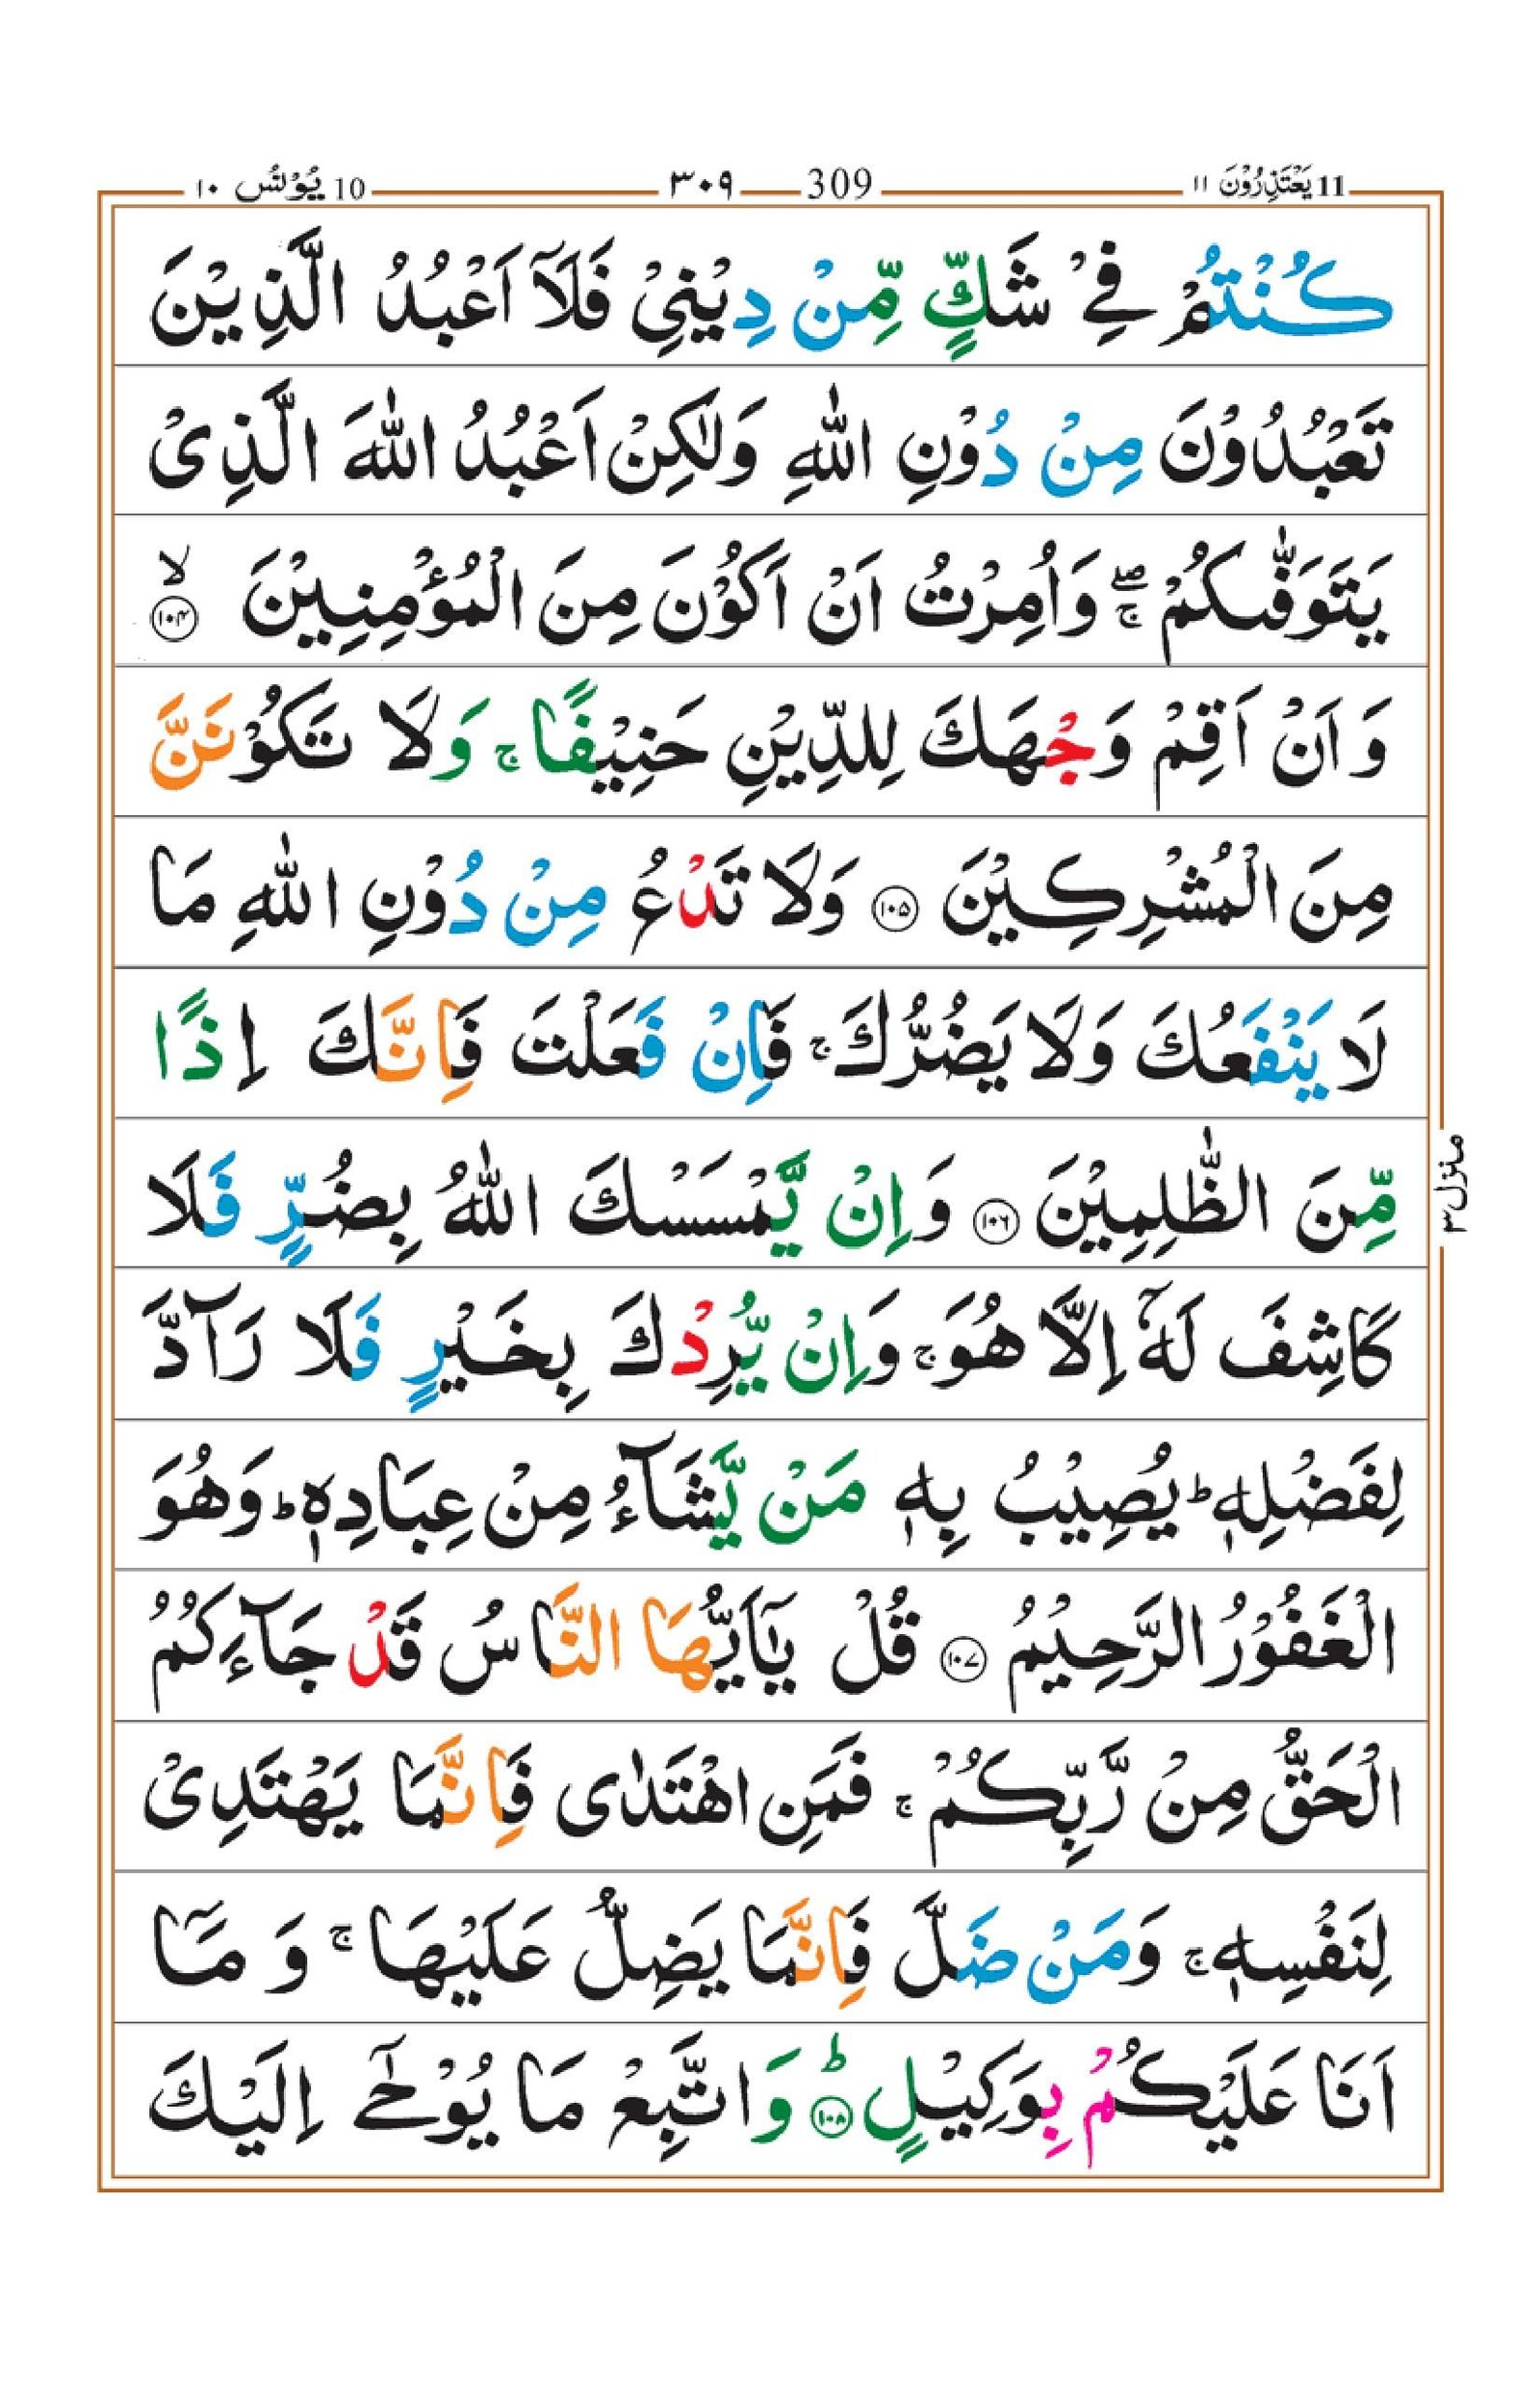 11 يَعْتَذِرُوْنَ ١١ 309 ٣٠٩ 10 يُوْنُسُ ١٠
كُنْتُمْ فِیْ شَكٍّ مِّنْ دِیْنِیْ فَلَاۤ اَعْبُدُ الَّذِیْنَ
تَعْبُدُوْنَ مِنْ دُوْنِ اللّٰهِ وَلٰكِنْ اَعْبُدُ اللّٰهَ الَّذِیْ
یَتَوَفّٰىكُمْ ۖۚ وَاُمِرْتُ اَنْ اَكُوْنَ مِنَ الْمُؤْمِنِیْنَ ۙ‏﴿۱۰۴﴾
وَ اَنْ اَقِمْ وَجْهَكَ لِلدِّیْنِ حَنِیْفًا ۚ وَلَا تَكُوْنَنَّ
مِنَ الْمُشْرِكِیْنَ ﴿۱۰۵﴾ وَلَا تَدْعُ مِنْ دُوْنِ اللّٰهِ مَا
لَا یَنْفَعُكَ وَلَا یَضُرُّكَ ۚ فَاِنْ فَعَلْتَ فَاِنَّكَ اِذًا
مِّنَ الظّٰلِمِیْنَ ﴿۱۰۶﴾ وَاِنْ یَّمْسَسْكَ اللّٰهُ بِضُرٍّ فَلَا
كَاشِفَ لَهٗۤ اِلَّا هُوَ ۚ وَاِنْ یُّرِدْكَ بِخَیْرٍ فَلَا رَآدَّ
لِفَضْلِهٖ ؕ یُصِیْبُ بِهٖ مَنْ یَّشَآءُ مِنْ عِبَادِهٖ ؕ وَهُوَ
الْغَفُوْرُ الرَّحِیْمُ ﴿۱۰۷﴾ قُلْ یٰۤاَیُّهَا النَّاسُ قَدْ جَآءَكُمُ
الْحَقُّ مِنْ رَّبِّكُمْ ۚ فَمَنِ اهْتَدٰی فَاِنَّمَا یَهْتَدِیْ
لِنَفْسِهٖ ۚ وَمَنْ ضَلَّ فَاِنَّمَا یَضِلُّ عَلَیْهَا ۚ وَ مَاۤ
اَنَا عَلَیْكُمْ بِوَكِیْلٍ ؕ﴿۱۰۸﴾ وَ اتَّبِعْ مَا یُوْحٰۤی اِلَیْكَ
منزل ٣